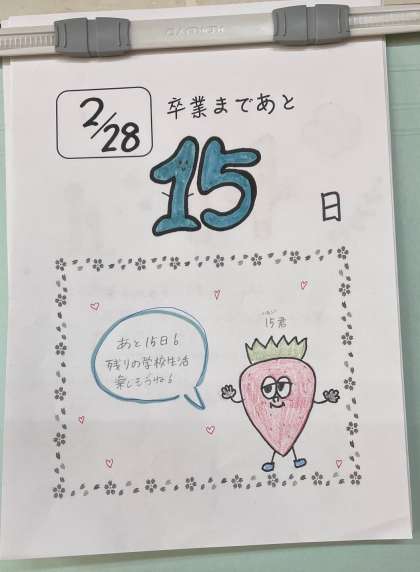 2/28
卒業まであと
15
日
あと15日!
残りの学校生活
楽しもうね!
いちご
15君